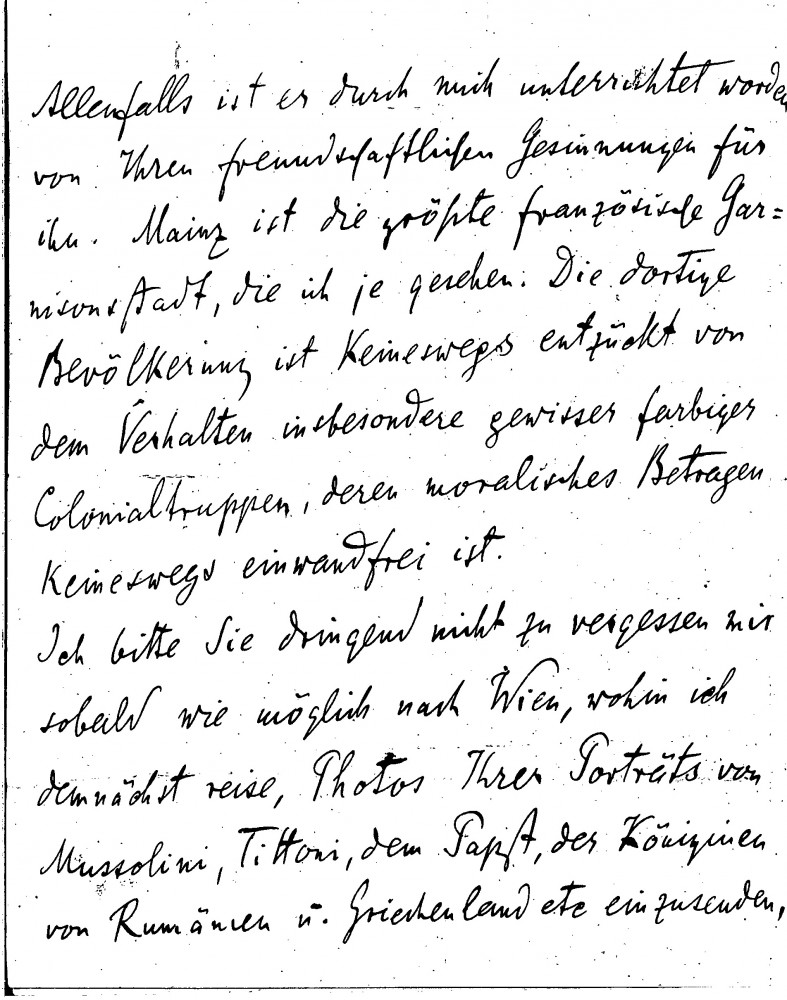 Allenfalls ist er durch mich unterrichtet worden
von Ihren freundschaftlichen Gesinnungen für
ihn. Mainz ist die größte französische Gar=
nisonsstadt, die ich je gesehen. Die dortige
Bevölkerung ist Keineswegs entzückt von
dem Verhalten insbesondere gewisser farbiger
Colonialtruppen, deren moralisches Betragen
Keineswegs einwandfrei ist.
Ich bitte Sie dringend nicht zu vergessen mir
sobald wie möglich nach Wien, wohin ich
demnächst reise, Photos Ihrer Porträts von
Mussolini, Tittoni, dem Papst, der Königinen
von Rumänien u. Griechenland etc einzusenden,